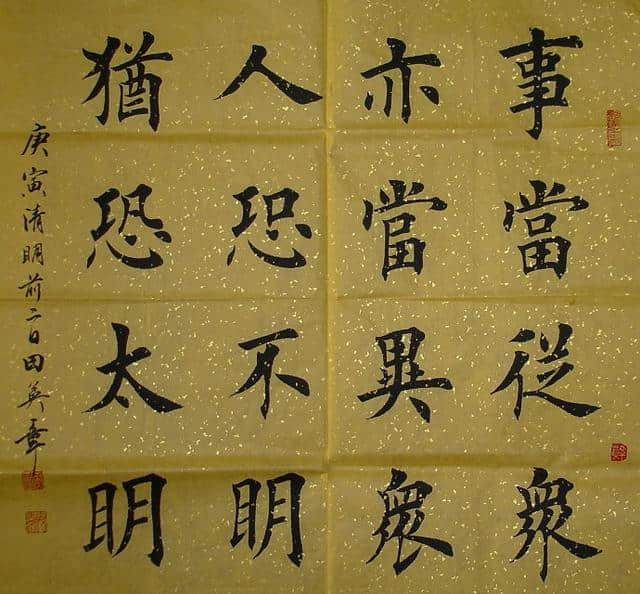 事當從衆
亦當異衆
人恐不明
猶恐太明
庚寅清明前二日田英章